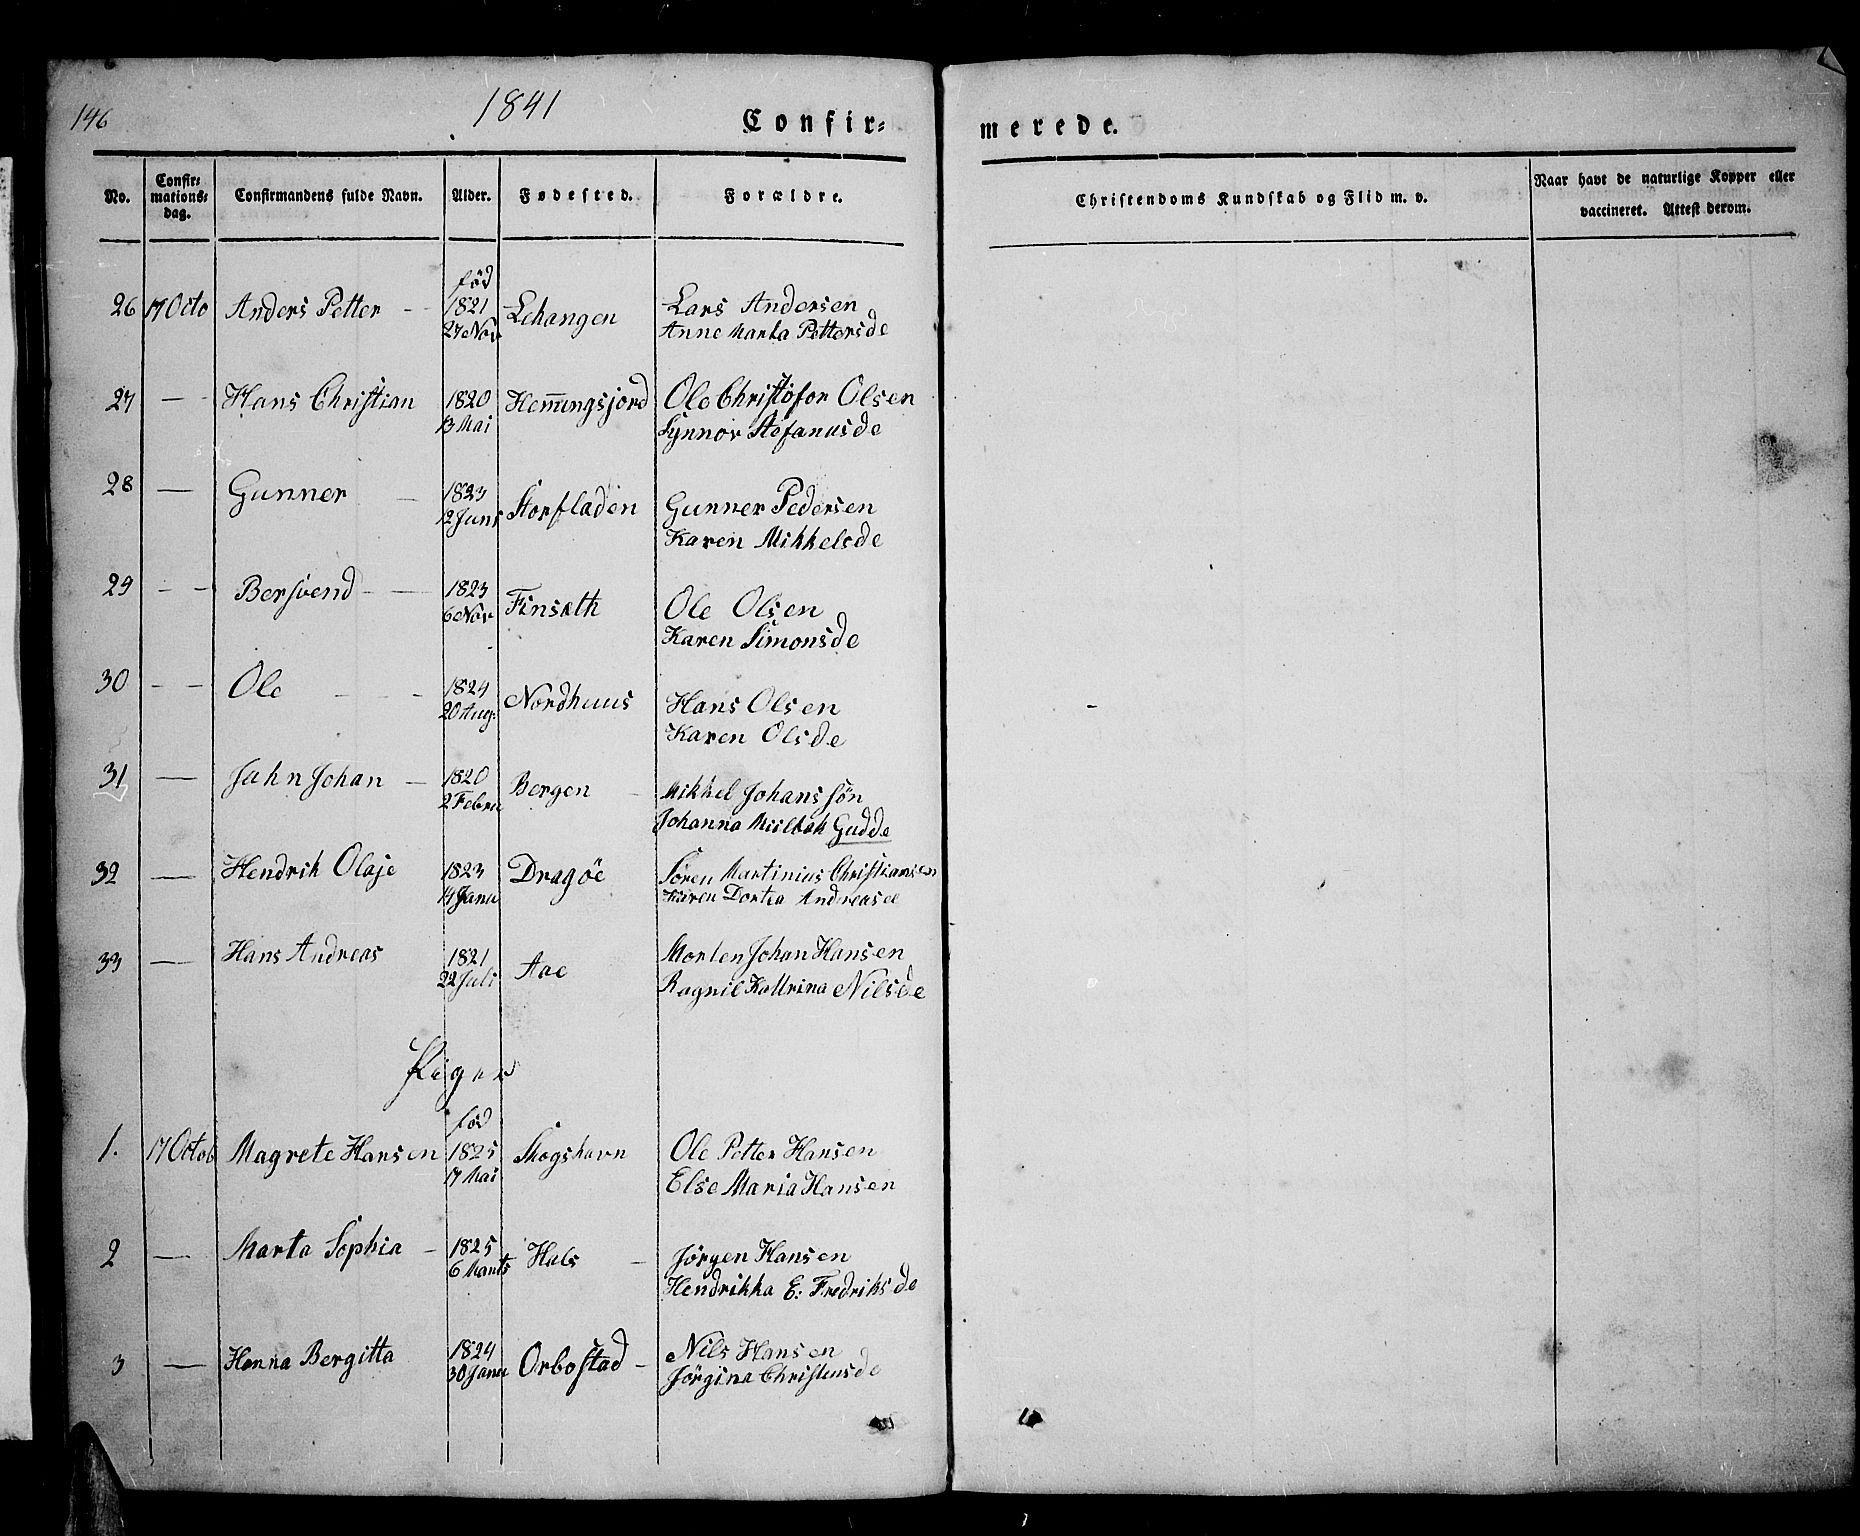 146
1841
Confir=
merede.
No.
Confir=
mations=
dag.
Confirmandens fulde Navn.
Alder.
Fødested.
Forældre.
Christendoms Kundskab og Flid m. v.
Naar havt de naturlige Kopper eller
vaccineret. Attest derom.
fød
26 17 Octo Anders Petter - 1821 Lekangen Lars Andersen
27 Nov Anne Marta Pettersde
27 - Hans Christian 1820 Henningsjord Ole Christofor Olsen
13 Mai Synnov Stefanusde
28 - Gunner - 1823 Storfladen Gunner Pedersen
12 Juni Karen Mikkelsde
29 - - Bersvend - - 1823 Finsæth Ole Olsen
6 Nov Karen Simonsde
30 - - Ole - - 1824 Nordhuus Hans Olsen
20 Aug: Karen Olsde
31 - Jahn Johan - 1820 Bergen - Mikkel Johans søn
2 Febru Johanna Miilbak Gudde
32 - Hendrik Olaje 1823 Dragöe Sören Martinius Christiansen
14 Janu Karen Dortea Andreasde
33 - Hans Andreas 1821 Aae Morten Johan Hansen
22 Juli Ragnil Kattrina Nilsde
Piger
fød
1. 17 Octob Magrete Hansen 1825 Skogshavn Ole Petter Hansen
17 Mai Else Maria Hansen
2 - Marta Sophia - 1825 Hals - Jörgen Hansen
6 Marts Hendrikka E: Fredriksde
3 - Hanna Bergitta 1824 Orbostad - Nils Hansen
30 Janu Jörgina Christensde